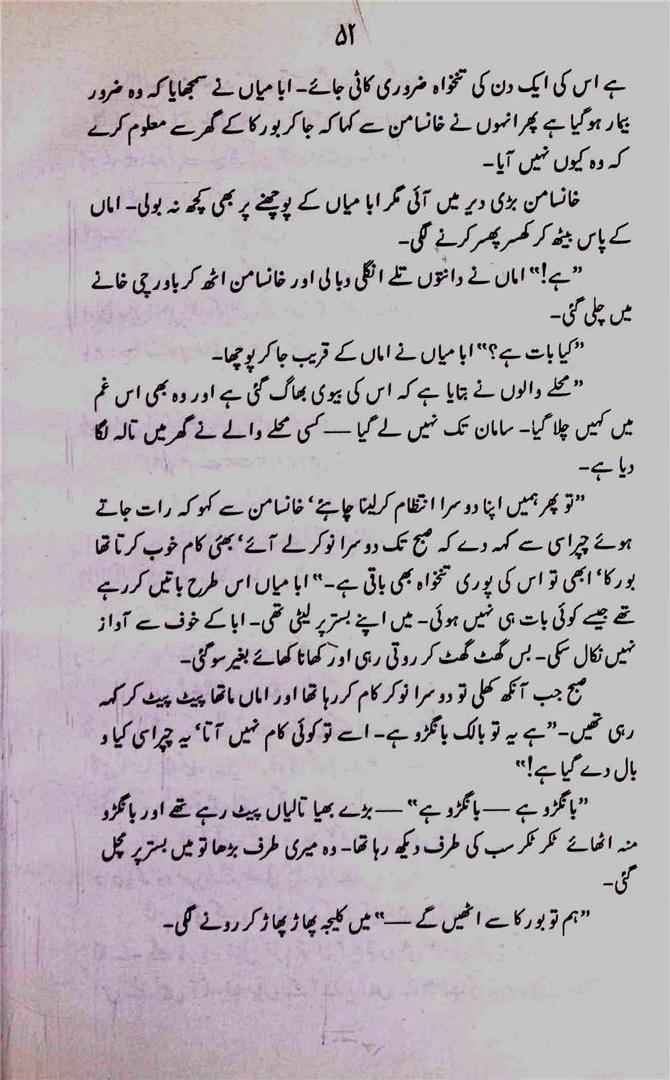 ۵۲
ہے اس کی ایک دن کی تنخواہ ضروری کاٹی جائے۔ ابا میاں نے سمجھایا کہ وہ ضرور
بیمار ہوگیا ہے پھر انہوں نے خانسامن سے کہا کہ جا کر بورکا کے گھر سے معلوم کرے
کہ وہ کیوں نہیں آیا۔
خانسامن بڑی دیر میں آئی مگر ابا میاں کے پوچھنے پر بھی کچھ نہ بولی۔ اماں
کے پاس بیٹھ کر کھسر پھسر کرنے لگی۔
”ہے!“ اماں نے دانتوں تلے انگلی دبا لی اور خانسامن اٹھ کر باورچی خانے
میں چلی گئی۔
”کیا بات ہے؟“ ابا میاں نے اماں کے قریب جا کر پوچھا۔
”محلے والوں نے بتایا ہے کہ اس کی بیوی بھاگ گئی ہے اور وہ بھی اس غم
میں کہیں چلا گیا۔ سامان تک نہیں لے گیا — کسی محلے والے نے گھر میں تالہ لگا
دیا ہے۔
”تو پھر ہمیں اپنا دوسرا انتظام کرلینا چاہئے‘ خانسامن سے کہو کہ رات جاتے
ہوئے چپراسی سے کہہ دے کہ صبح تک دوسرا نوکر لے آئے‘ بھئی کام خوب کرتا تھا
بورکا‘ ابھی تو اس کی پوری تنخواہ بھی باقی ہے۔“ ابا میاں اس طرح باتیں کررہے
تھے جیسے کوئی بات ہی نہیں ہوئی۔ میں اپنے بستر پر لیٹی تھی۔ ابا کے خوف سے آواز
نہیں نکال سکی۔ بس گھٹ گھٹ کر روتی رہی اور کھانا کھائے بغیر سوگئی۔
صبح جب آنکھ کھلی تو دوسرا نوکر کام کررہا تھا اور اماں ماتھا پیٹ پیٹ کر کہہ
رہی تھیں۔ ”ہے یہ تو بالک بانگڑو ہے۔ اسے تو کوئی کام نہیں آتا‘ یہ چپراسی کیا و
بال دے گیا ہے!“
”بانگڑو ہے — بانگڑو ہے“ — بڑے بھیا تالیاں پیٹ رہے تھے اور بانگڑو
منہ اٹھائے ٹکر ٹکر سب کی طرف دیکھ رہا تھا۔ وہ میری طرف بڑھا تو میں بستر پر مچل
گئی۔
”ہم تو بورکا سے اٹھیں گے —“ میں کلیجہ پھاڑ پھاڑ کر رونے لگی۔